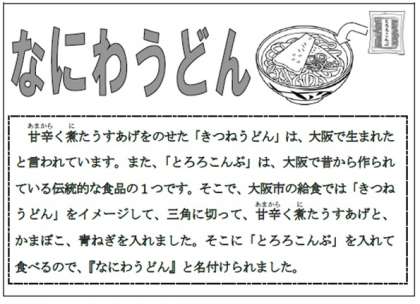 なにわうどん
とろろこんぶ
甘辛く煮たうすあげをのせた「きつねうどん」は、大阪で生まれた
と言われています。また、「とろろこんぶ」は、大阪で昔から作られ
ている伝統的な食品の１つです。そこで、大阪市の給食では「きつね
うどん」をイメージして、三角に切って、甘辛く煮たうすあげと、
かまぼこ、青ねぎを入れました。そこに「とろろこんぶ」を入れて
食べるので、『なにわうどん』と名付けられました。